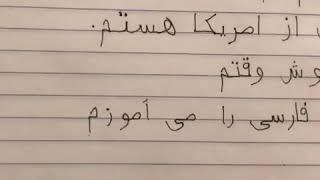 از امریکا هستم.
وقتم
فارسی را می آموزم